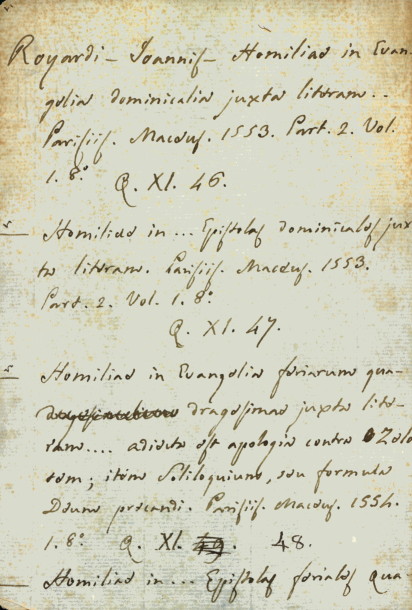 Royardi – Joannis – Homiliae in Evan-
gelia dominicalia juxta literam..
Parisiis. Macaeus. 1553. Part. 2. Vol.
1. 8.° Q. XI. 46.
5 Homiliae in ... Epistolas dominicales jux
ta literam. Parisiis. Macaeus. 1553.
Part. 2. Vol. 1. 8.°
Q. XI. 47.
5 Homiliae in Evangelia feriarum qua-
dragesimae juxta lite-
ram.... adiecta est apologia contra Zelo
tem; item Soliloquium, seu formula
Deum precandi. Parisiis. Macaeus. 1554.
1. 8.° Q. XI. 49. 48.
Homiliae in ... Epistolas feriales qua